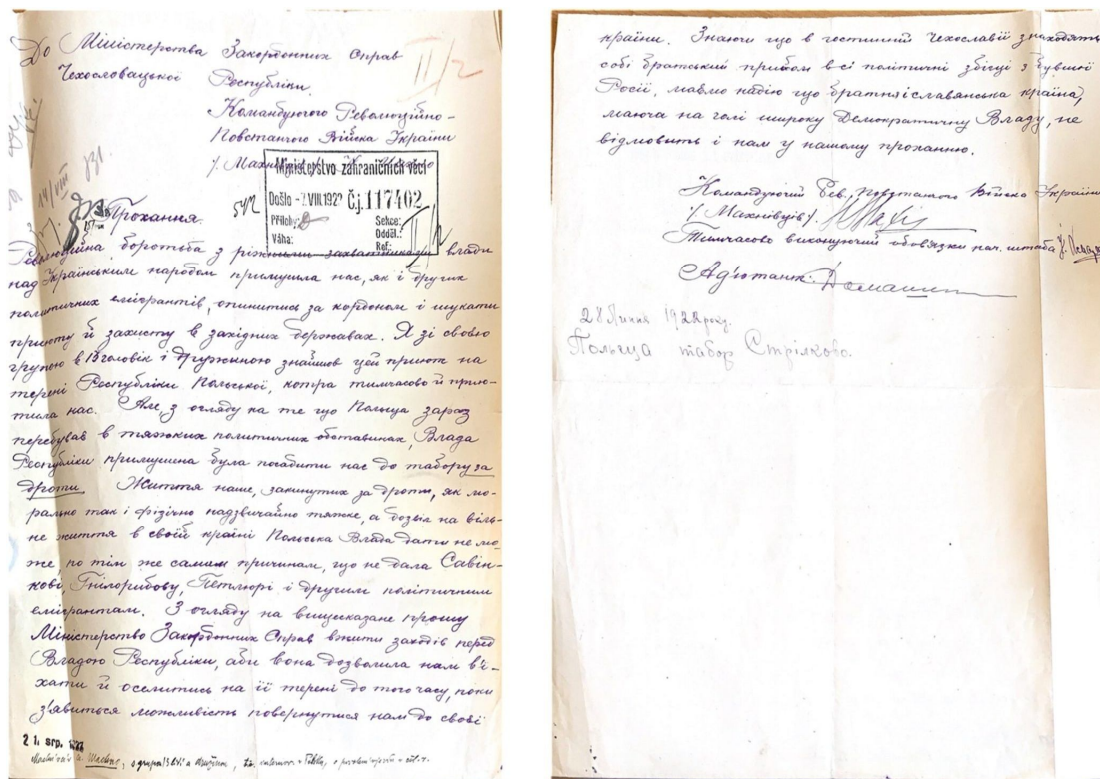 До Міністерства Закордонних Справ
Чехословацької Республіки.
II/2
Командуючого Революційно-
Повстанчого Війська України
/. Махн
Ministerstvo zahraničních věcí
Došlo -7.VIII.1922 Č.j. 117402
Přílohy:
Sekce:
Odděl.:
Váha:
Ref.:
14/VIII
Прохання.
Революційна боротьба з ріжними захватниками влади
над Українським народом примусила нас, як і других
політичних емігрантів, опинитись за кордоном і шукати
приюту й захисту в західних державах. Я зі своєю
групою в 13 чоловік і дружиною знайшов цей приют на
терені Республіки Польської, котра тимчасово й прию-
тила нас. Але, з огляду на те що Польща зараз
перебував в тяжких політичних обставинах, Влада
Республіки примушена була посадити нас до табору за
дроти. Життя наше, закинутих за дроти, як мо-
рально так і фізично надзвичайно тяжке, а дозвіл на віль-
не життя в своїй країні Польська Влада дати не мо-
же по тім же самим причинам, що не дала Савін-
кові, Гнілорибову, Петлюрі і другим політичним
емігрантам. З огляду на вищесказане прошу
Міністерство Закордонних Справ вжити заходів перед
Владою Республіки, аби вона дозволила нам в'ї-
хати й оселитись на її терені до того часу, поки
з'явиться можливість повернутися нам до своєї
21. srp. 1922
країни. Знаючи що в гостинній Чехославії знаходять
собі братський прийом всі політичні збігці з бувшої
Росії, маємо надію що братня славянська країна,
маюча на чолі широку Демократичну Владу, не
відмовить і нам у нашому проханню.
Командуючий Рев. Повстанчого Війська України
/. Махнівців /.
Тимчасово виконуючий обовязки нач. штаба
Адютант: Домашенко
28 Липня 1922 року.
Польща табор Стрілково.